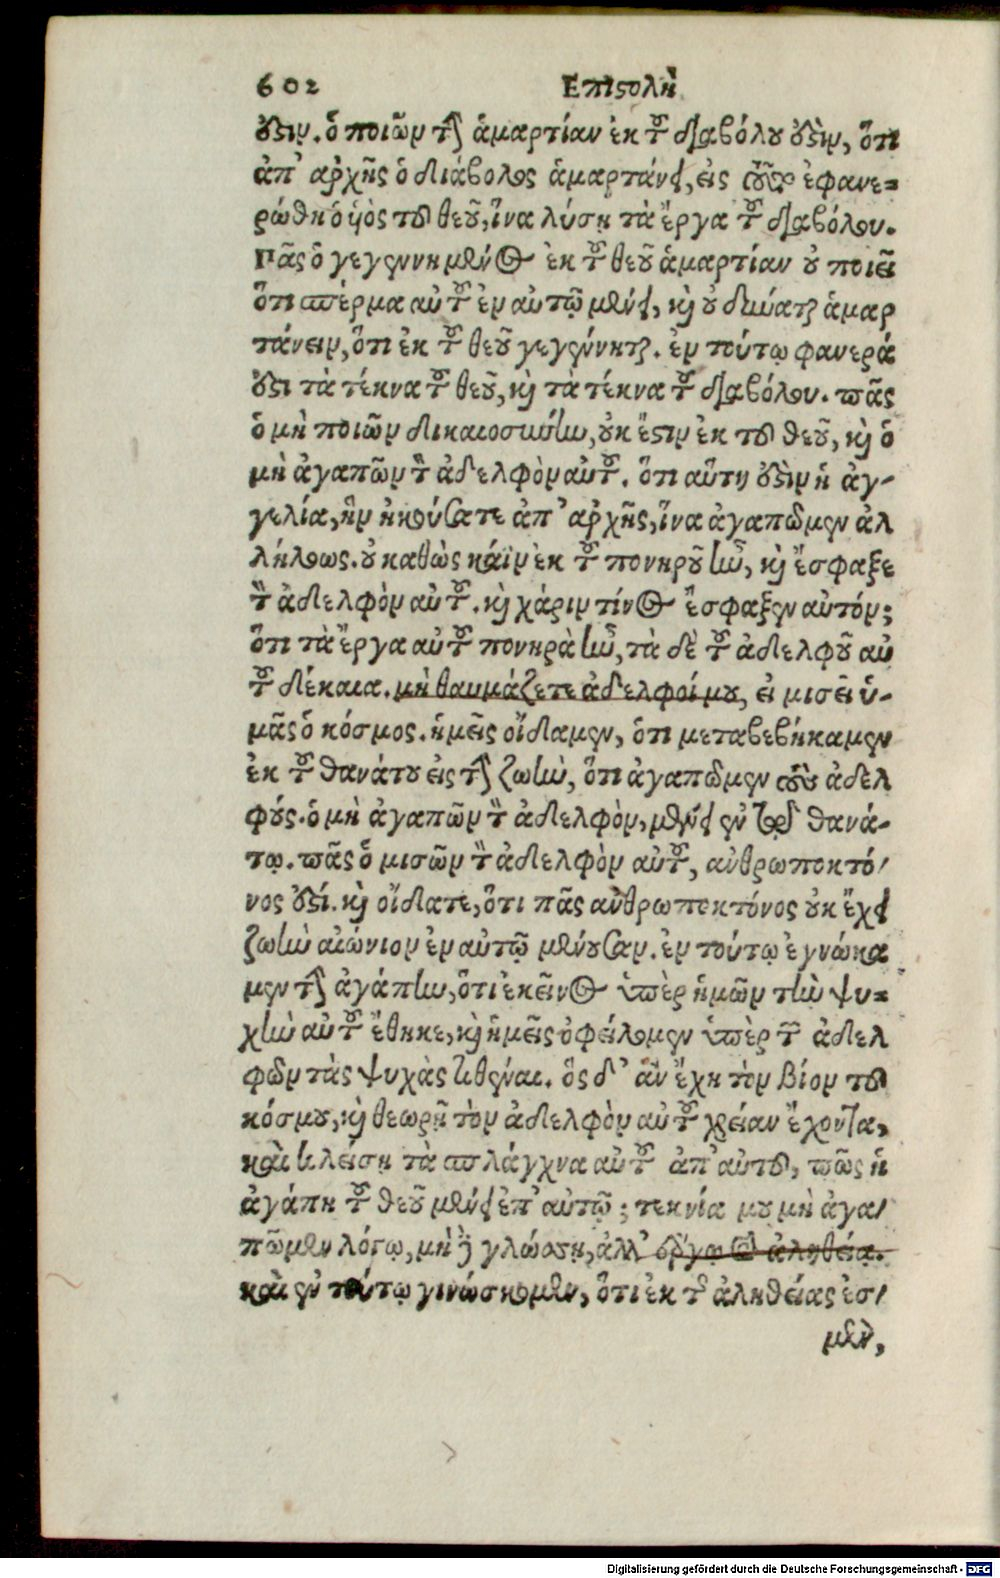 602 Επιστολὴ
ἐστιν. ὁ ποιῶν τὴν ἁμαρτίαν ἐκ τοῦ διαβόλου ἐστὶν, ὅτι
ἀπ' αρχῆς ὁ διάβολος ἁμαρτάνει, εἰς τοῦτο ἐφανε=
ρώθη ὁ υἱὸς τοῦ θεοῦ, ἵνα λύσῃ τὰ ἔργα τοῦ διαβόλου.
Πᾶς ὁ γεγεννημένος ἐκ τοῦ θεοῦ ἁμαρτίαν οὐ ποιεῖ
ὅτι σπέρμα αὐτοῦ ἐν αὐτῷ μένει, καὶ οὐ δύναται ἁμαρ
τάνειν, ὅτι ἐκ τοῦ θεοῦ γεγέννηται. ἐν τούτῳ φανερά
ἐστι τὰ τέκνα τοῦ θεοῦ, καὶ τὰ τέκνα τοῦ διαβόλου. πᾶς
ὁ μὴ ποιῶν δικαιοσύνην, οὐκ ἔστιν ἐκ τοῦ θεοῦ, καὶ ὁ
μὴ ἀγαπῶν τὸν ἀδελφὸν αὐτοῦ. ὅτι αὕτη ἐστὶν ἡ ἀγ-
γελία, ἣν ἠκούσατε ἀπ' αρχῆς, ἵνα ἀγαπῶμεν ἀλ
λήλους. οὐ καθὼς κάϊν ἐκ τοῦ πονηροῦ ἦν, καὶ ἔσφαξε
τὸν ἀδελφὸν αὐτοῦ. καὶ χάριν τίνος ἔσφαξεν αὐτόν;
ὅτι τὰ ἔργα αὐτοῦ πονηρὰ ἦν, τὰ δὲ τοῦ ἀδελφοῦ αὐ
τοῦ δίκαια. μὴ θαυμάζετε ἀδελφοί μου, εἰ μισεῖ ὑ-
μᾶς ὁ κόσμος. ἡμεῖς οἴδαμεν, ὅτι μεταβεβήκαμεν
ἐκ τοῦ θανάτου εἰς τὴν ζωὴν, ὅτι ἀγαπῶμεν τοὺς ἀδελ
φούς. ὁ μὴ ἀγαπῶν τὸν ἀδελφὸν, μένει ἐν τῷ θανά-
τῳ. πᾶς ὁ μισῶν τὸν ἀδελφὸν αὐτοῦ, ανθρωποκτό/
νος ἐστί. καὶ οἴδατε, ὅτι πᾶς ανθρωποκτόνος οὐκ ἔχει
ζωὴν αἰώνιον ἐν αὐτῷ μένουσαν. ἐν τούτῳ ἐγνώκα
μεν τὴν ἀγάπην, ὅτι ἐκεῖνος ὑπὲρ ἡμῶν τὴν ψυ=
χὴν αὐτοῦ ἔθηκε, καὶ ἡμεῖς ὀφείλομεν ὑπὲρ τῶν ἀδελ
φῶν τὰς ψυχὰς τιθέναι. ὃς δ' ἂν ἔχῃ τὸν βίον τοῦ
κόσμου, καὶ θεωρῇ τὸν ἀδελφὸν αὐτοῦ χρείαν ἔχοντα,
καὶ κλείσῃ τὰ σπλάγχνα αὐτοῦ ἀπ' αὐτοῦ, πῶς ἡ
ἀγάπη τοῦ θεοῦ μένει ἐπ' αὐτῷ; τεκνία μου μὴ ἀγα/
πῶμεν λόγῳ, μὴ δὲ γλώσσῃ, ἀλλ' ἔργῳ καὶ ἀληθείᾳ.
καὶ ἐν τούτῳ γινώσκομεν, ὅτι ἐκ τῆς ἀληθείας ἐσ/
μὲν,
Digitalisierung gefördert durch die Deutsche Forschungsgemeinschaft - DFG